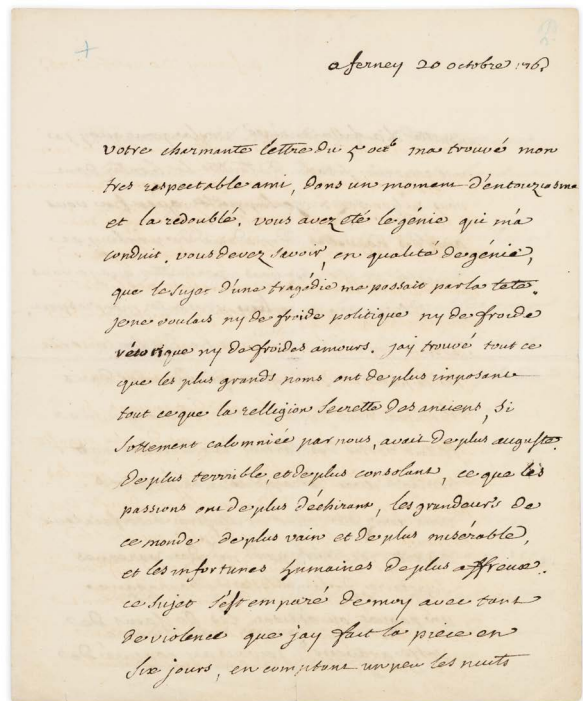 a ferney 20 octobre 176
votre charmante lettre du 5 octb ma trouvé mon
tres respectable ami, dans un moment d'entouziasme
et la redoublé. vous avez été le génie qui m'a
conduit. vous devez savoir, en qualité de génie,
que le sujet d'une tragédie me passait par la tete.
je ne voulais ny de froide politique ny de froide
rétorique ny de froides amours. jay trouvé tout ce
que les plus grands noms ont de plus imposant
tout ce que la relligion secrette des anciens, si
sottement calomniée par nous, avait de plus auguste.
de plus terrible, et de plus consolant, ce que les
passions ont de plus déchirant, les grandeurs de
ce monde de plus vain et de plus misérable,
et les infortunes humaines de plus affreux.
ce sujet s'est emparé de moy avec tant
de violence que jay fait la piece en
six jours, en comptant un peu les nuits